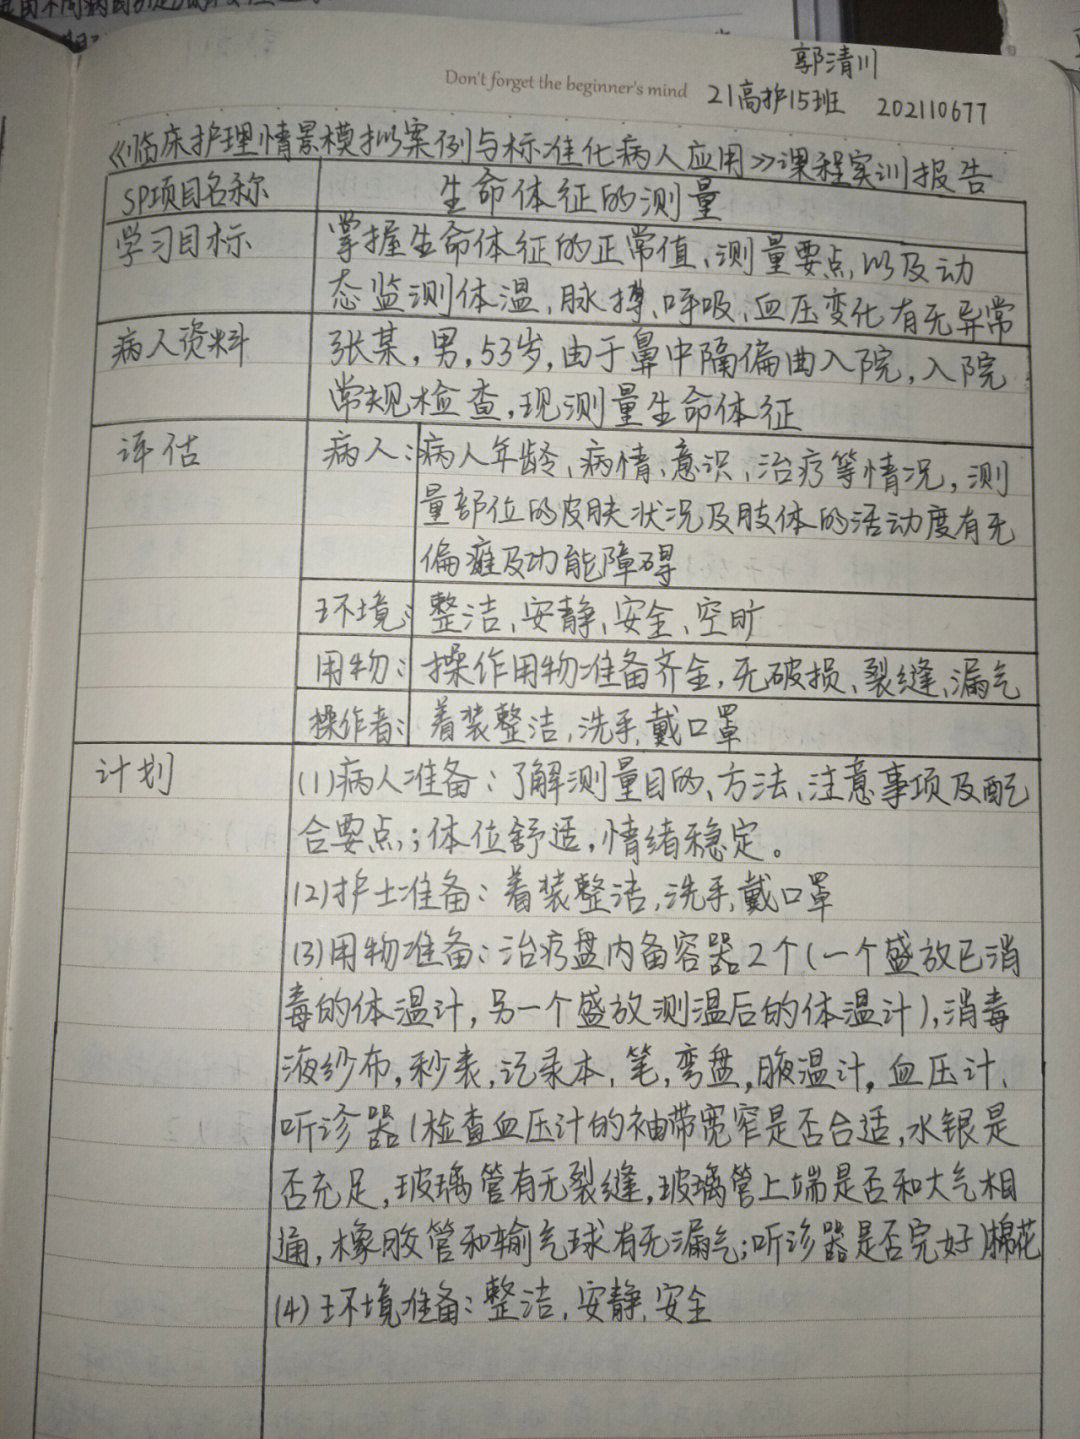 郭清川
Don't forget the beginner's mind
21高护15班 202110677
《临床护理情景模拟案例与标准化病人应用》课程实训报告
SP项目名称 生命体征的测量
学习目标 掌握生命体征的正常值、测量要点,以及动
态监测体温、脉搏、呼吸、血压变化有无异常
病人资料 张某,男,53岁,由于鼻中隔偏曲入院,入院
常规检查,现测量生命体征
评估 病人: 病人年龄、病情、意识、治疗等情况,测
量部位的皮肤状况及肢体的活动度有无
偏瘫及功能障碍
环境: 整洁、安静、安全、空旷
用物: 操作用物准备齐全,无破损、裂缝、漏气
操作者: 着装整洁,洗手,戴口罩
计划 (1)病人准备:了解测量目的、方法、注意事项及配
合要点;体位舒适,情绪稳定。
(2)护士准备:着装整洁,洗手,戴口罩
(3)用物准备:治疗盘内备容器2个(一个盛放已消
毒的体温计,另一个盛放测温后的体温计),消毒
液纱布,秒表,记录本,笔,弯盘,腋温计,血压计、
听诊器(检查血压计的袖带宽窄是否合适,水银是
否充足,玻璃管有无裂缝,玻璃管上端是否和大气相
通,橡胶管和输气球有无漏气;听诊器是否完好)棉花
(4)环境准备:整洁,安静,安全